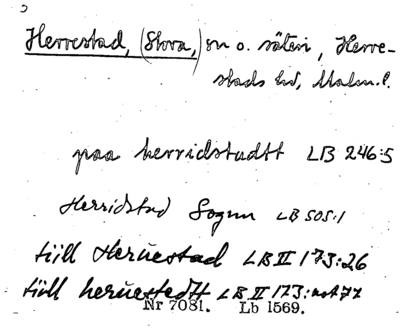 Herrestad, (Stora,) sn o. säteri, Herre-
stads hd, Malm. l.
paa herridstadtt LB 246:5
Herridstad Sognn LB 505:1
till Herüestad LB II 173:26
till herüestedtt LB II 173: not 77
Nr 7081. Lb 1569.